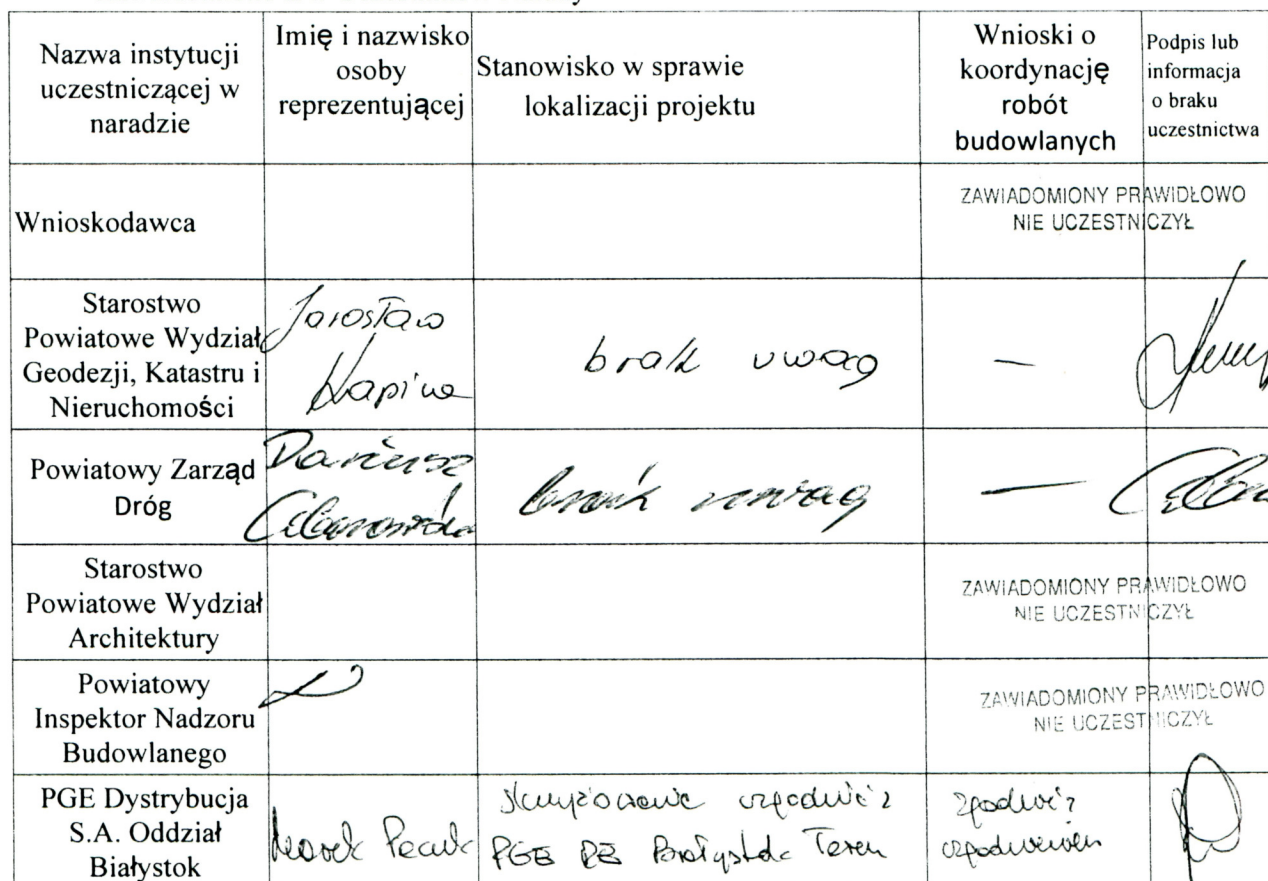 Nazwa instytucji
uczestniczącej w
naradzie
Imię i nazwisko
osoby
reprezentującej
Stanowisko w sprawie
lokalizacji projektu
Wnioski o
koordynację
robót
budowlanych
Podpis lub
informacja
o braku
uczestnictwa
Wnioskodawca
ZAWIADOMIONY PRAWIDŁOWO
NIE UCZESTNICZYŁ
Starostwo
Powiatowe Wydział
Geodezji, Katastru i
Nieruchomości
Jarosław
brak uwag
—
Powiatowy Zarząd
Dróg
Dariusz
brak uwag
—
Starostwo
Powiatowe Wydział
Architektury
ZAWIADOMIONY PRAWIDŁOWO
NIE UCZESTNICZYŁ
Powiatowy
Inspektor Nadzoru
Budowlanego
ZAWIADOMIONY PRAWIDŁOWO
NIE UCZESTNICZYŁ
PGE Dystrybucja
S.A. Oddział
Białystok
Marek
PGE RE Białystok Teren